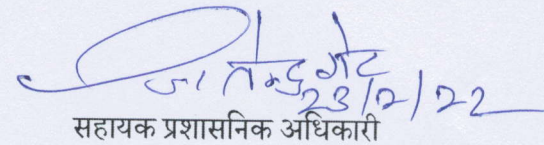 23/12/22
सहायक प्रशासनिक अधिकारी